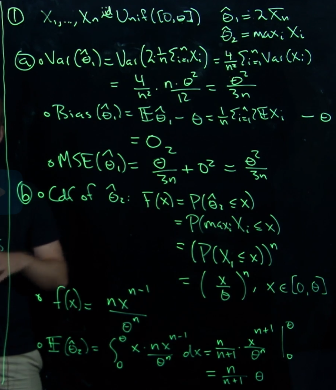 ① X₁,...,Xₙ iid Unif([0,θ]) θ̂₁ = 2X̄ₙ
θ̂₂ = maxᵢ Xᵢ
ⓐ ∘ Var(θ̂₁) = Var(2 1/n Σᵢ₌₁ⁿ Xᵢ) = 4/n² Σᵢ₌₁ⁿ Var(Xᵢ)
= 4/n² · n · θ²/12 = θ²/3n
∘ Bias(θ̂₁) = 𝔼θ̂₁ - θ = 1/n Σᵢ₌₁ⁿ 2𝔼Xᵢ - θ
= 0
∘ MSE(θ̂₁) = θ²/3n + 0² = θ²/3n
ⓑ ∘ Cdf of θ̂₂: F(x) = P(θ̂₂ ≤ x)
= P(maxᵢ Xᵢ ≤ x)
= (P(X₁ ≤ x))ⁿ
= (x/θ)ⁿ, x ∈ [0,θ]
∘ f(x) = nxⁿ⁻¹/θⁿ
∘ 𝔼(θ̂₂) = ∫₀^θ x · nxⁿ⁻¹/θⁿ dx = n/n+1 · xⁿ⁺¹/θⁿ |₀^θ
= n/n+1 · θ